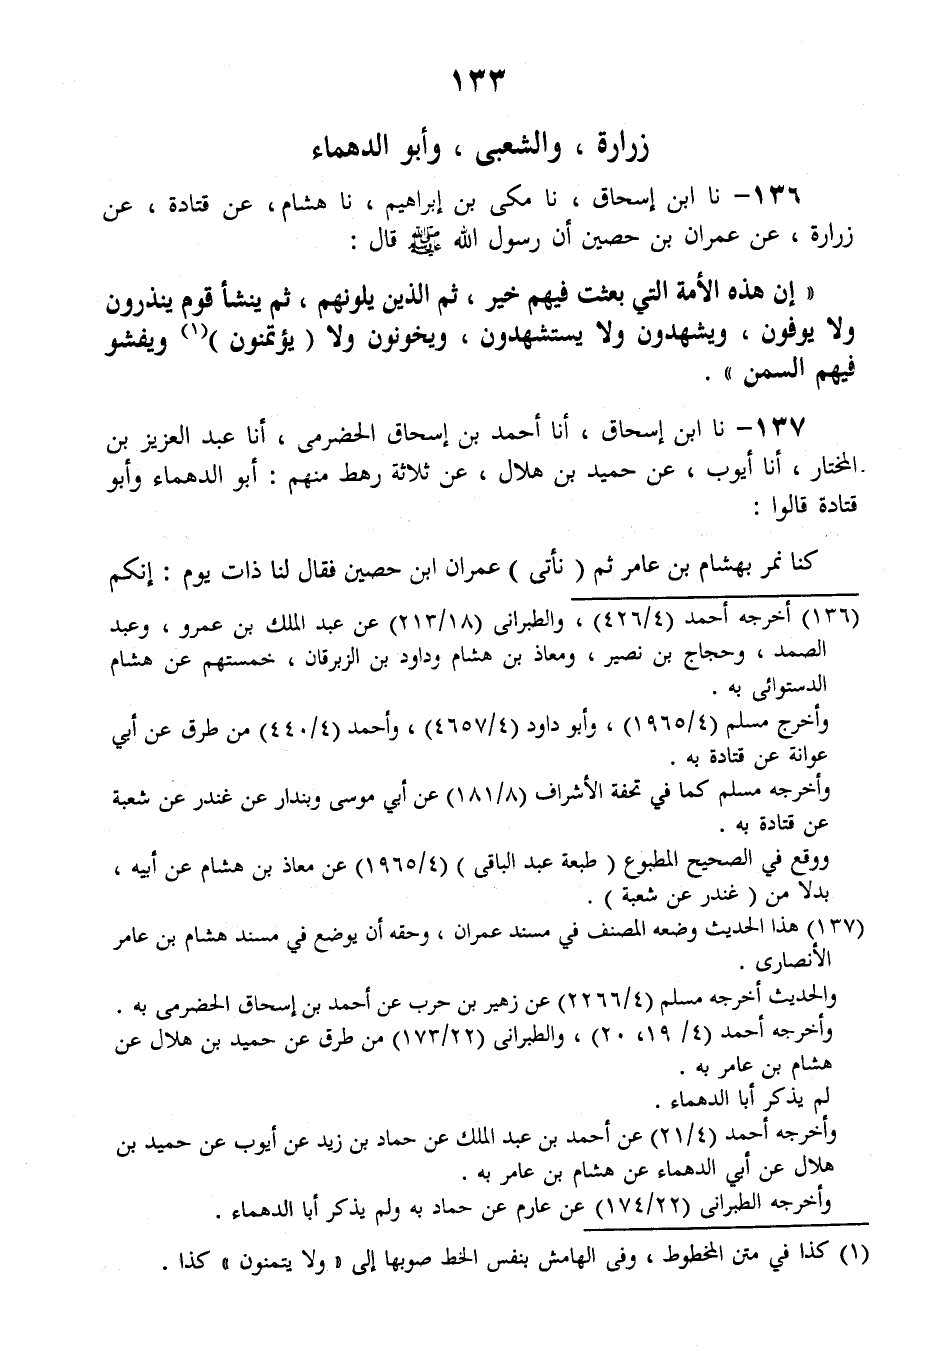 ١٣٣
زرارة ، والشعبى ، وأبو الدهماء
١٣٦- نا ابن إسحاق ، نا مكى بن إبراهيم ، نا هشام، عن قتادة ، عن
زرارة ، عن عمران بن حصين أن رسول الله ﷺ قال :
« إن هذه الأمة التي بعثت فيهم خير ، ثم الذين يلونهم ، ثم ينشأ قوم ينذرون
ولا يوفون ، ويشهدون ولا يستشهدون ، ويخونون ولا ( يؤتمنون )(١) ويفشو
فيهم السمن » .
١٣٧- نا ابن إسحاق ، أنا أحمد بن إسحاق الحضرمى ، أنا عبد العزيز بن
المختار ، أنا أيوب ، عن حميد بن هلال ، عن ثلاثة رهط منهم : أبو الدهماء وأبو
قتادة قالوا :
كنا نمر بهشام بن عامر ثم ( نأتى ) عمران ابن حصين فقال لنا ذات يوم : إنكم
(١٣٦) أخرجه أحمد (٤٢٦/٤) ، والطبرانى (٢١٣/١٨) عن عبد الملك بن عمرو ، وعبد
الصمد ، وحجاج بن نصير ، ومعاذ بن هشام وداود بن الزبرقان ، خمستهم عن هشام
الدستوائى به .
وأخرج مسلم (١٩٦٥/٤) ، وأبو داود (٤٦٥٧/٤) ، وأحمد (٤٤٠/٤) من طرق عن أبي
عوانة عن قتادة به .
وأخرجه مسلم كما في تحفة الأشراف (١٨١/٨) عن أبي موسى وبندار عن غندر عن شعبة
عن قتادة به .
ووقع في الصحيح المطبوع ( طبعة عبد الباقى ) (١٩٦٥/٤) عن معاذ بن هشام عن أبيه ،
بدلا من ( غندر عن شعبة ) .
(١٣٧) هذا الحديث وضعه المصنف في مسند عمران ، وحقه أن يوضع في مسند هشام بن عامر
الأنصارى .
والحديث أخرجه مسلم (٢٢٦٦/٤) عن زهير بن حرب عن أحمد بن إسحاق الحضرمى به .
وأخرجه أحمد (٤/ ١٩، ٢٠) ، والطبرانى (١٧٣/٢٢) من طرق عن حميد بن هلال عن
هشام بن عامر به .
لم يذكر أبا الدهماء .
وأخرجه أحمد (٢١/٤) عن أحمد بن عبد الملك عن حماد بن زيد عن أيوب عن حميد بن
هلال عن أبي الدهماء عن هشام بن عامر به .
وأخرجه الطبرانى (١٧٤/٢٢) عن عارم عن حماد به ولم يذكر أبا الدهماء .
(١) كذا في متن المخطوط ، وفى الهامش بنفس الخط صوبها إلى « ولا يتمنون » كذا .